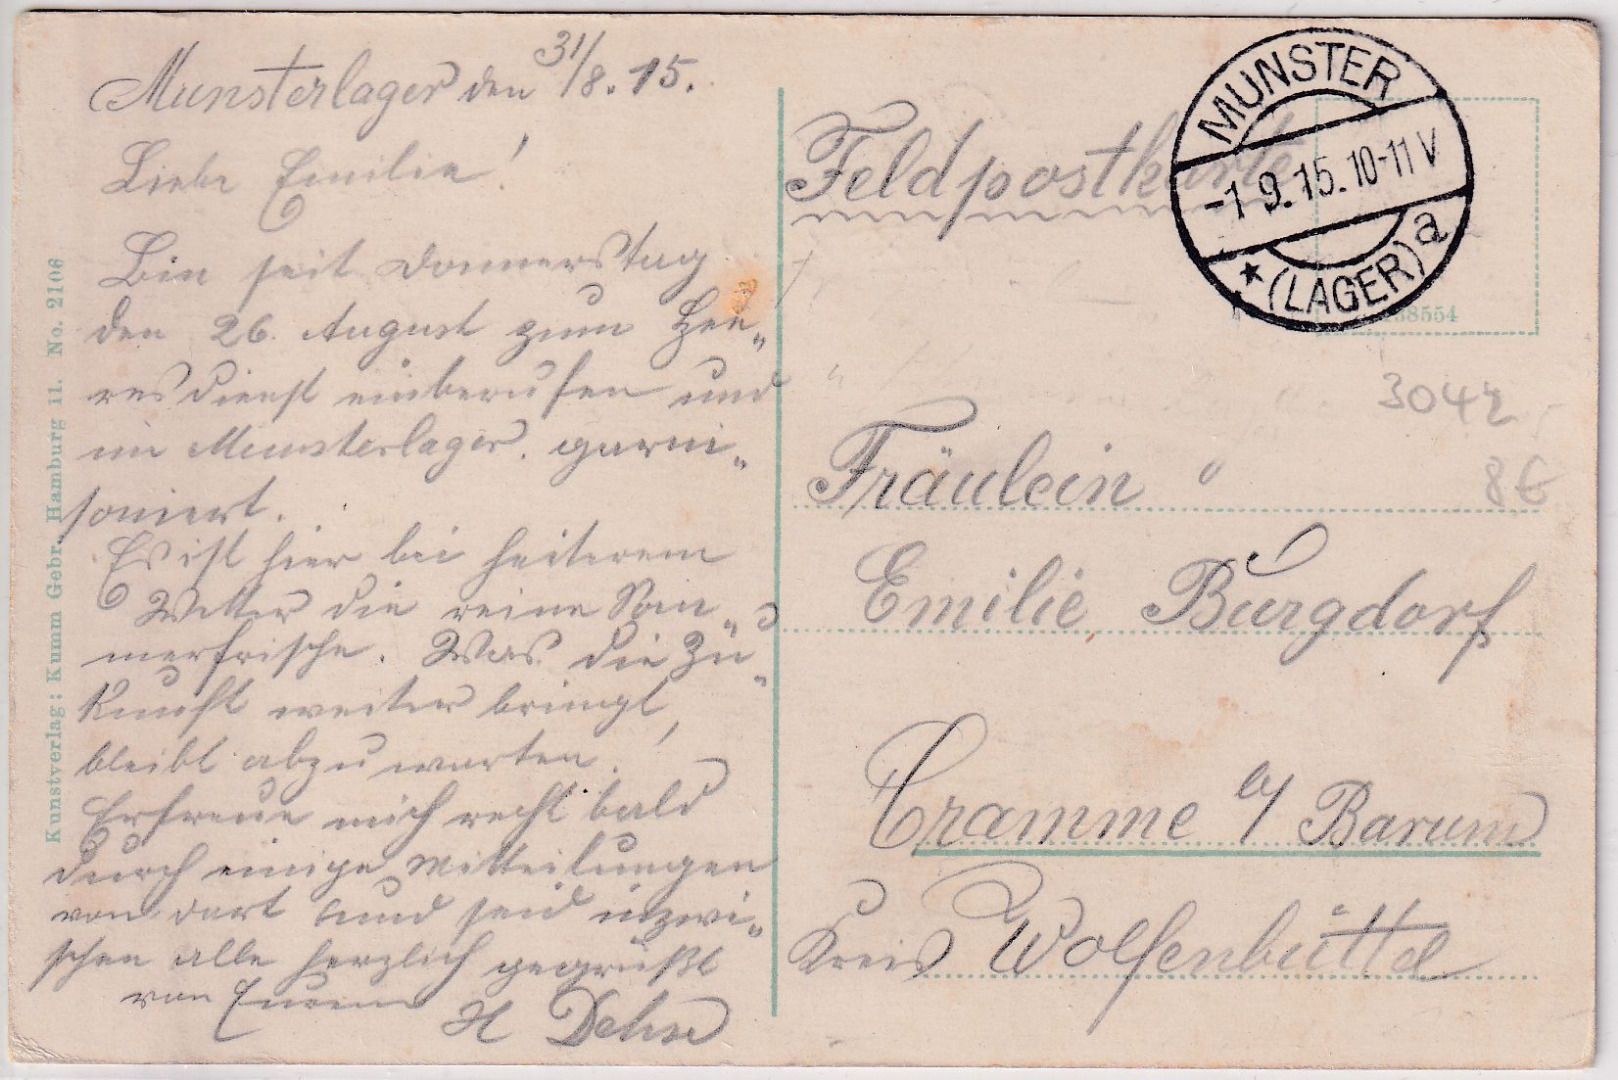 Munsterlager den 31/8. 15.
Liebe Emilie!
Bin seit Donnerstag
den 26. August zum Hee„
resdienst einberufen und
im Munsterlager. garni„
soniert.
Es ist hier bei heiterem
Wetter die reine Som„
merfrische. Was die Zu„
kunft weiter bringt,
bleibt abzuwarten!
Erfreue mich recht bald
durch einige Mitteilungen
von dort und seid inzwi„
schen alle herzlich gegrüßt
von Eurem
H Dehne
Kunstverlag: Kumm Gebr. Hamburg 11. No. 2106
Feldpostkarte
MUNSTER
-1.9.15.10-11V
(LAGER) a
38554
3042
8€
Fräulein
Emilie Burgdorf
Cramme b/ Barum
Kreis Wolfenbüttel